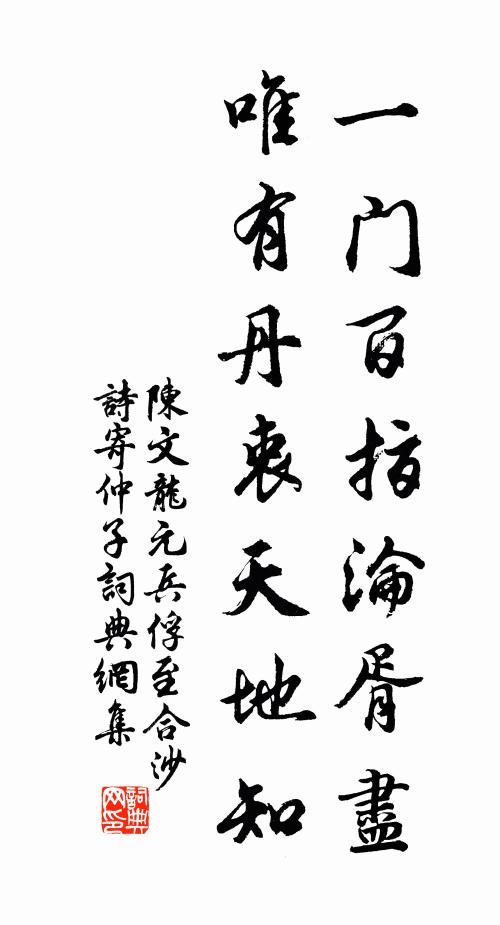 一門百指淪胥盡
唯有丹衷天地知
陳文龍元兵俘至合沙
詩寄仲子詞典網集
詞典
网印